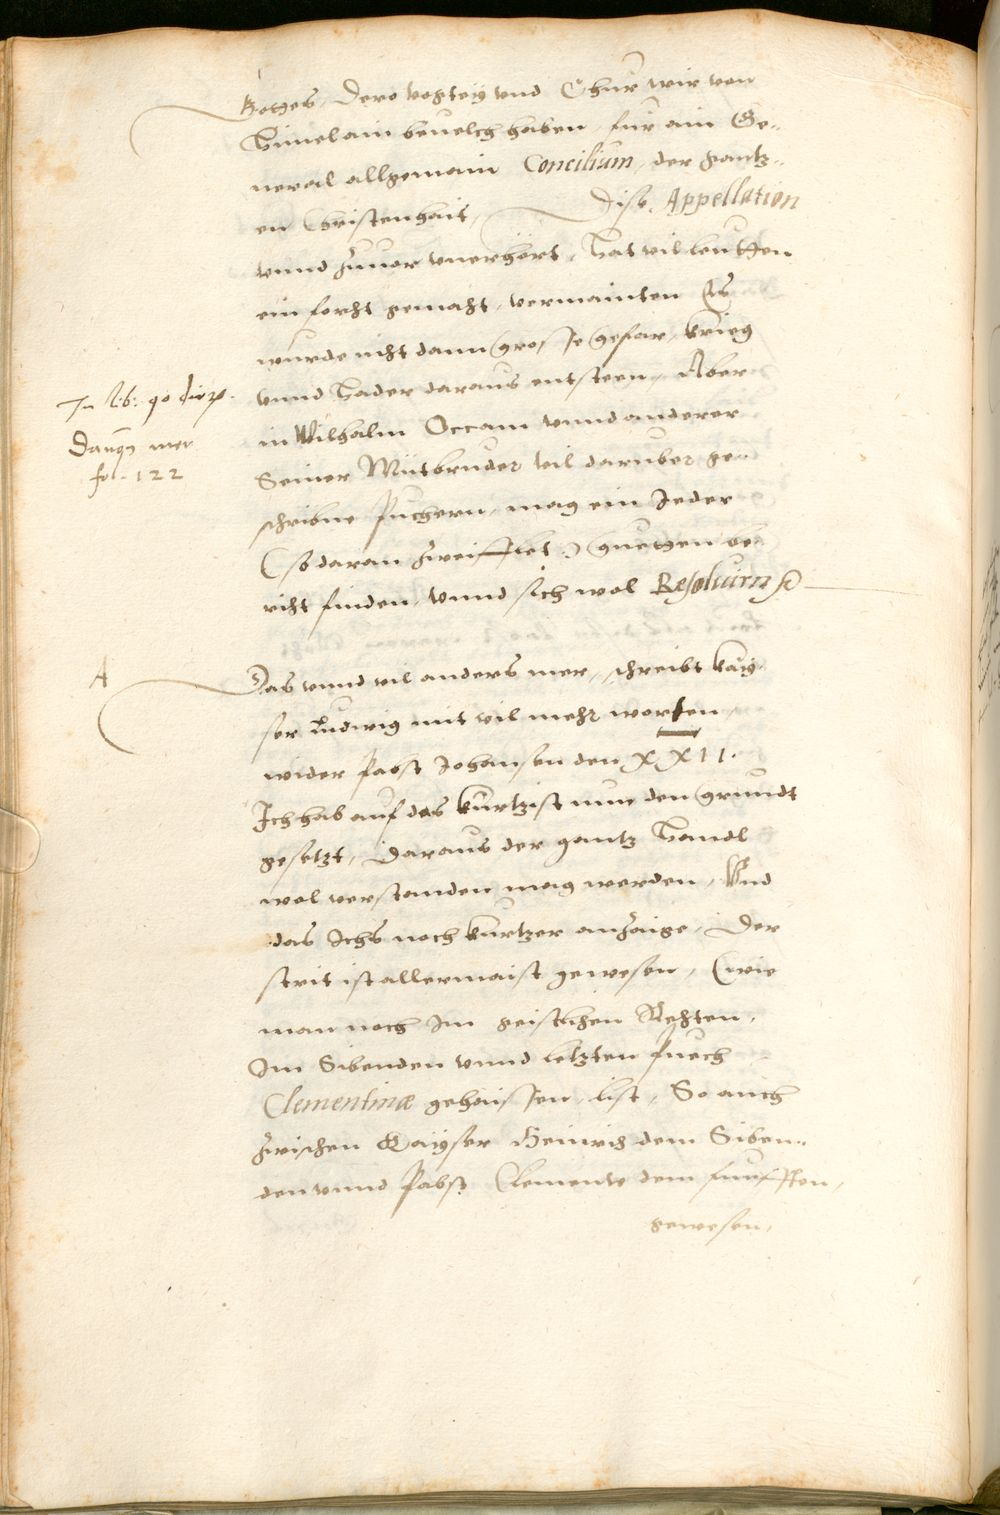 Gottes, Dero vogtey vnd Chur wir von
Himel ain beuelch haben, fur ain Ge-
neral allgemain Concilium, der gantz-
en Christenhait, Dise Appellation
vnnd zuuor vnerhört, Hat vil leutten
ein forcht gemacht, vermainten Es
wurde nicht dann grosse gefar, krieg
vnnd Hader daraus entsteen, Aber
in Wilhalm Occam vnnd anderer
Seiner Mitbruder vil daruber ge-
schribne Puchern, mag ein Jeder
(so daran zweifflet) guetgen be-
richt finden, vnnd sich wol Resoluirn
In lib: 90
fol. 122
A
Das vnnd vil anders mer, schreibt kay-
ser Ludwig mit vil mehr worten
wider Pabst Johansen den XXII.
Ich hab auf das kurtzist nur den grundt
gesetzt, Daraus der gantz Handl
wol verstanden mag werden, Vnd
das Ichs noch kurtzer anzaige, Der
strit ist allermaist gewesen, (wie
man noch Im geistlichen Rechten,
Im Sibenden vnnd letzten Puech
Clementinæ gehaissen, list, So auch
zwischen Kayser Heinrich dem Siben-
den vnnd Pabst Clemente dem funfften,
gewesen,